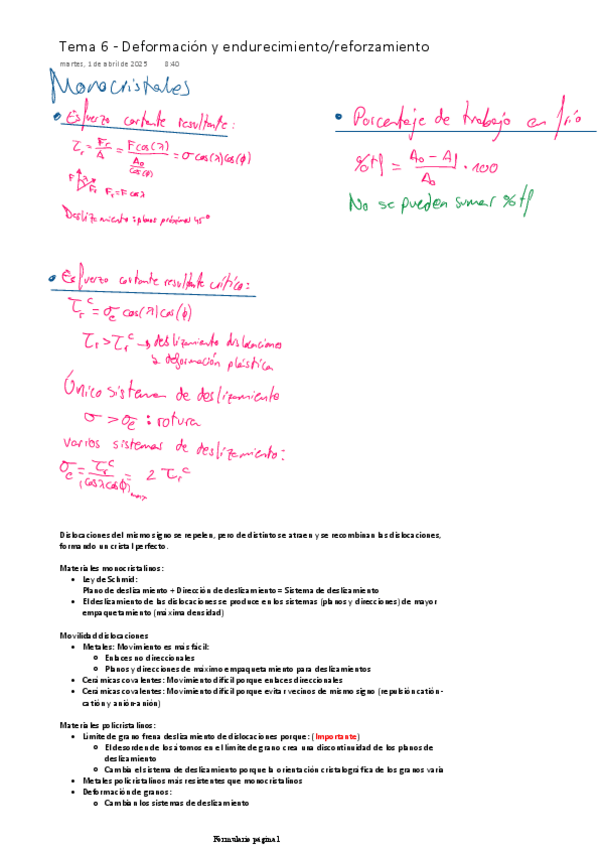 Tema 6 - Deformación y endurecimiento/reforzamiento
martes, 1 de abril de 2025 8:40
Monocristales
• Esfuerzo cortante resultante:
τr = Fr/A = F cos(λ)/(A0/cos(φ)) = σ cos(λ) cos(φ)
F Fr Fr = F cos λ
Deslizamiento: planos próximos 45°
• Esfuerzo cortante resultante crítico:
τr^c = σe cos(λ) cos(φ)
τr > τr^c → deslizamiento dislocaciones
↳ deformación plástica
Único sistema de deslizamiento
σ > σe : rotura
varios sistemas de deslizamiento:
σe = τr^c/(cosλ cosφ)max = 2 τr^c
• Porcentaje de trabajo en frío
%tf = (A0 - Af)/A0 · 100
No se pueden sumar %tf
Dislocaciones del mismo signo se repelen, pero de distinto se atraen y se recombinan las dislocaciones,
formando un cristal perfecto.
Materiales monocristalinos:
• Ley de Schmid:
Plano de deslizamiento + Dirección de deslizamiento = Sistema de deslizamiento
• El deslizamiento de las dislocaciones se produce en los sistemas (planos y direcciones) de mayor
empaquetamiento (máxima densidad)
Movilidad dislocaciones
• Metales: Movimiento es más fácil:
o Enlaces no direccionales
o Planos y direcciones de máximo empaquetamiento para deslizamientos
• Cerámicas covalentes: Movimiento difícil porque enlaces direccionales
• Cerámicas covalentes: Movimiento difícil porque evitar vecinos de mismo signo (repulsión catión-
catión y anión-anión)
Materiales policristalinos:
• Limite de grano frena deslizamiento de dislocaciones porque: (Importante)
o El desorden de los átomos en el límite de grano crea una discontinuidad de los planos de
deslizamiento
o Cambia el sistema de deslizamiento porque la orientación cristalográfica de los granos varía
• Metales policristalinos más resistentes que monocristalinos
• Deformación de granos:
o Cambian los sistemas de deslizamiento
Formulario página 1